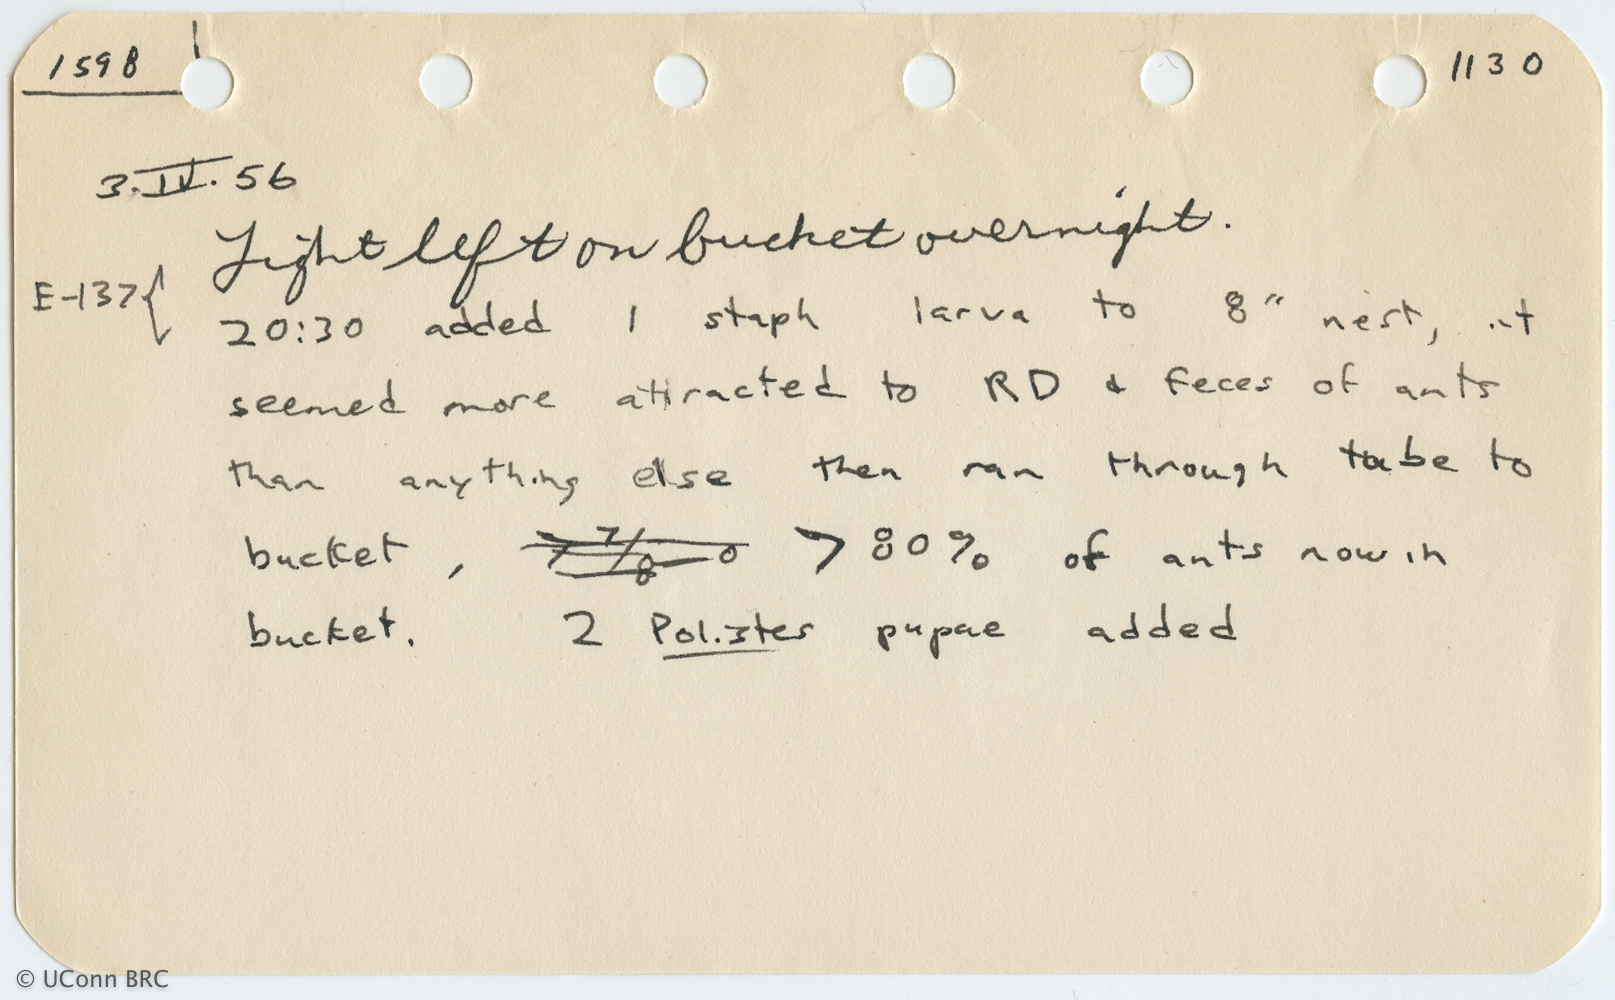 159B
1130
3.IV.56
Light left on bucket overnight.
E-137{
20:30 added 1 staph larva to 8" nest, it
seemed more attracted to RD & feces of ants
than anything else then ran through tube to
bucket, > 80% of ants now in
bucket. 2 Polistes pupae added
© UConn BRC